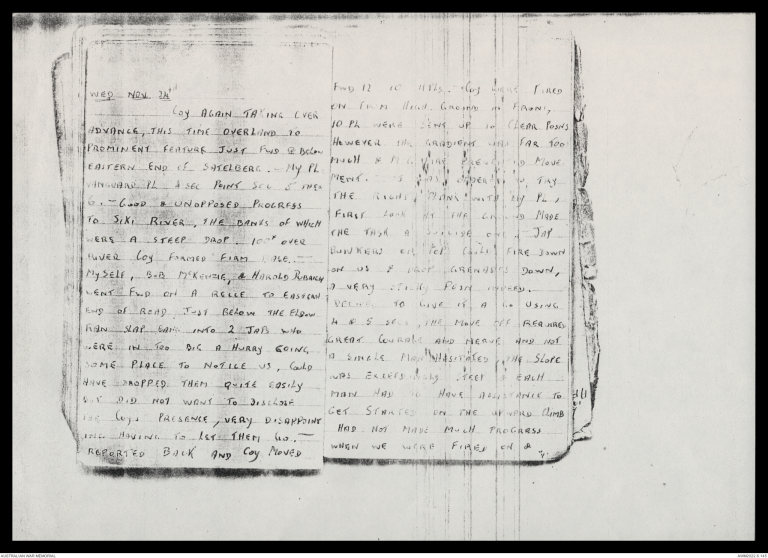 WED NOV 24th
Coy AGAIN TAKING OVER
ADVANCE, THIS TIME OVERLAND TO
PROMINENT FEATURE JUST FWD & BELOW
EASTERN END OF SATELBERG. - MY PL
VANGUARD PL 4 SEC POINT SEC 5 THEN
6. - GOOD & UNOPPOSED PROGRESS
TO SIKI RIVER, THE BANKS OF WHICH
WERE A STEEP DROP. 100x OVER
RIVER COY FORMED FIRM BASE. -
MYSELF, BOB McKENZIE, & HAROLD
WENT FWD ON A RECCE TO EASTERN
END OF ROAD JUST BELOW THE ELBOW
RAN SLAP BANG INTO 2 JAPS WHO
WERE IN TOO BIG A HURRY GOING
SOME PLACE TO NOTICE US, COULD
HAVE DROPPED THEM QUITE EASILY
BUT DID NOT WANT TO DISCLOSE
THE COYS PRESENCE, VERY DISAPPOINT
ING HAVING TO LET THEM GO. -
REPORTED BACK AND COY MOVED
FWD 12 10 HRS. COY WERE FIRED
ON FROM HIGH GROUND IN FRONT,
10 PL WERE SENT UP TO CLEAR POSNS
HOWEVER THE GRADIENT WAS FAR TOO
MUCH & M.G. FIRE PREVENTED MOVE
MENT. I WAS ORDERED TO TRY
THE RIGHT FLANK WITH MY PL,
FIRST LOOK AT THE GROUND MADE
THE TASK A SUICIDE ONE. JAP
BUNKERS ON TOP COULD FIRE DOWN
ON US & DROP GRENADES DOWN,
A VERY STICKY POSN INDEED.
DECIDED TO GIVE IT A GO USING
4 & 5 SECS, THE MOVE OFF REQUIRED
GREAT COURAGE AND NERVE AND NOT
A SINGLE MAN HASITATED, THE SLOPE
WAS EXCEEDINGLY STEEP & EACH
MAN HAD TO HAVE ASSISTANCE TO
GET STARTED ON THE UPWARD CLIMB
HAD NOT MADE MUCH PROGRESS
WHEN WE WERE FIRED ON &
AUSTRALIAN WAR MEMORIAL